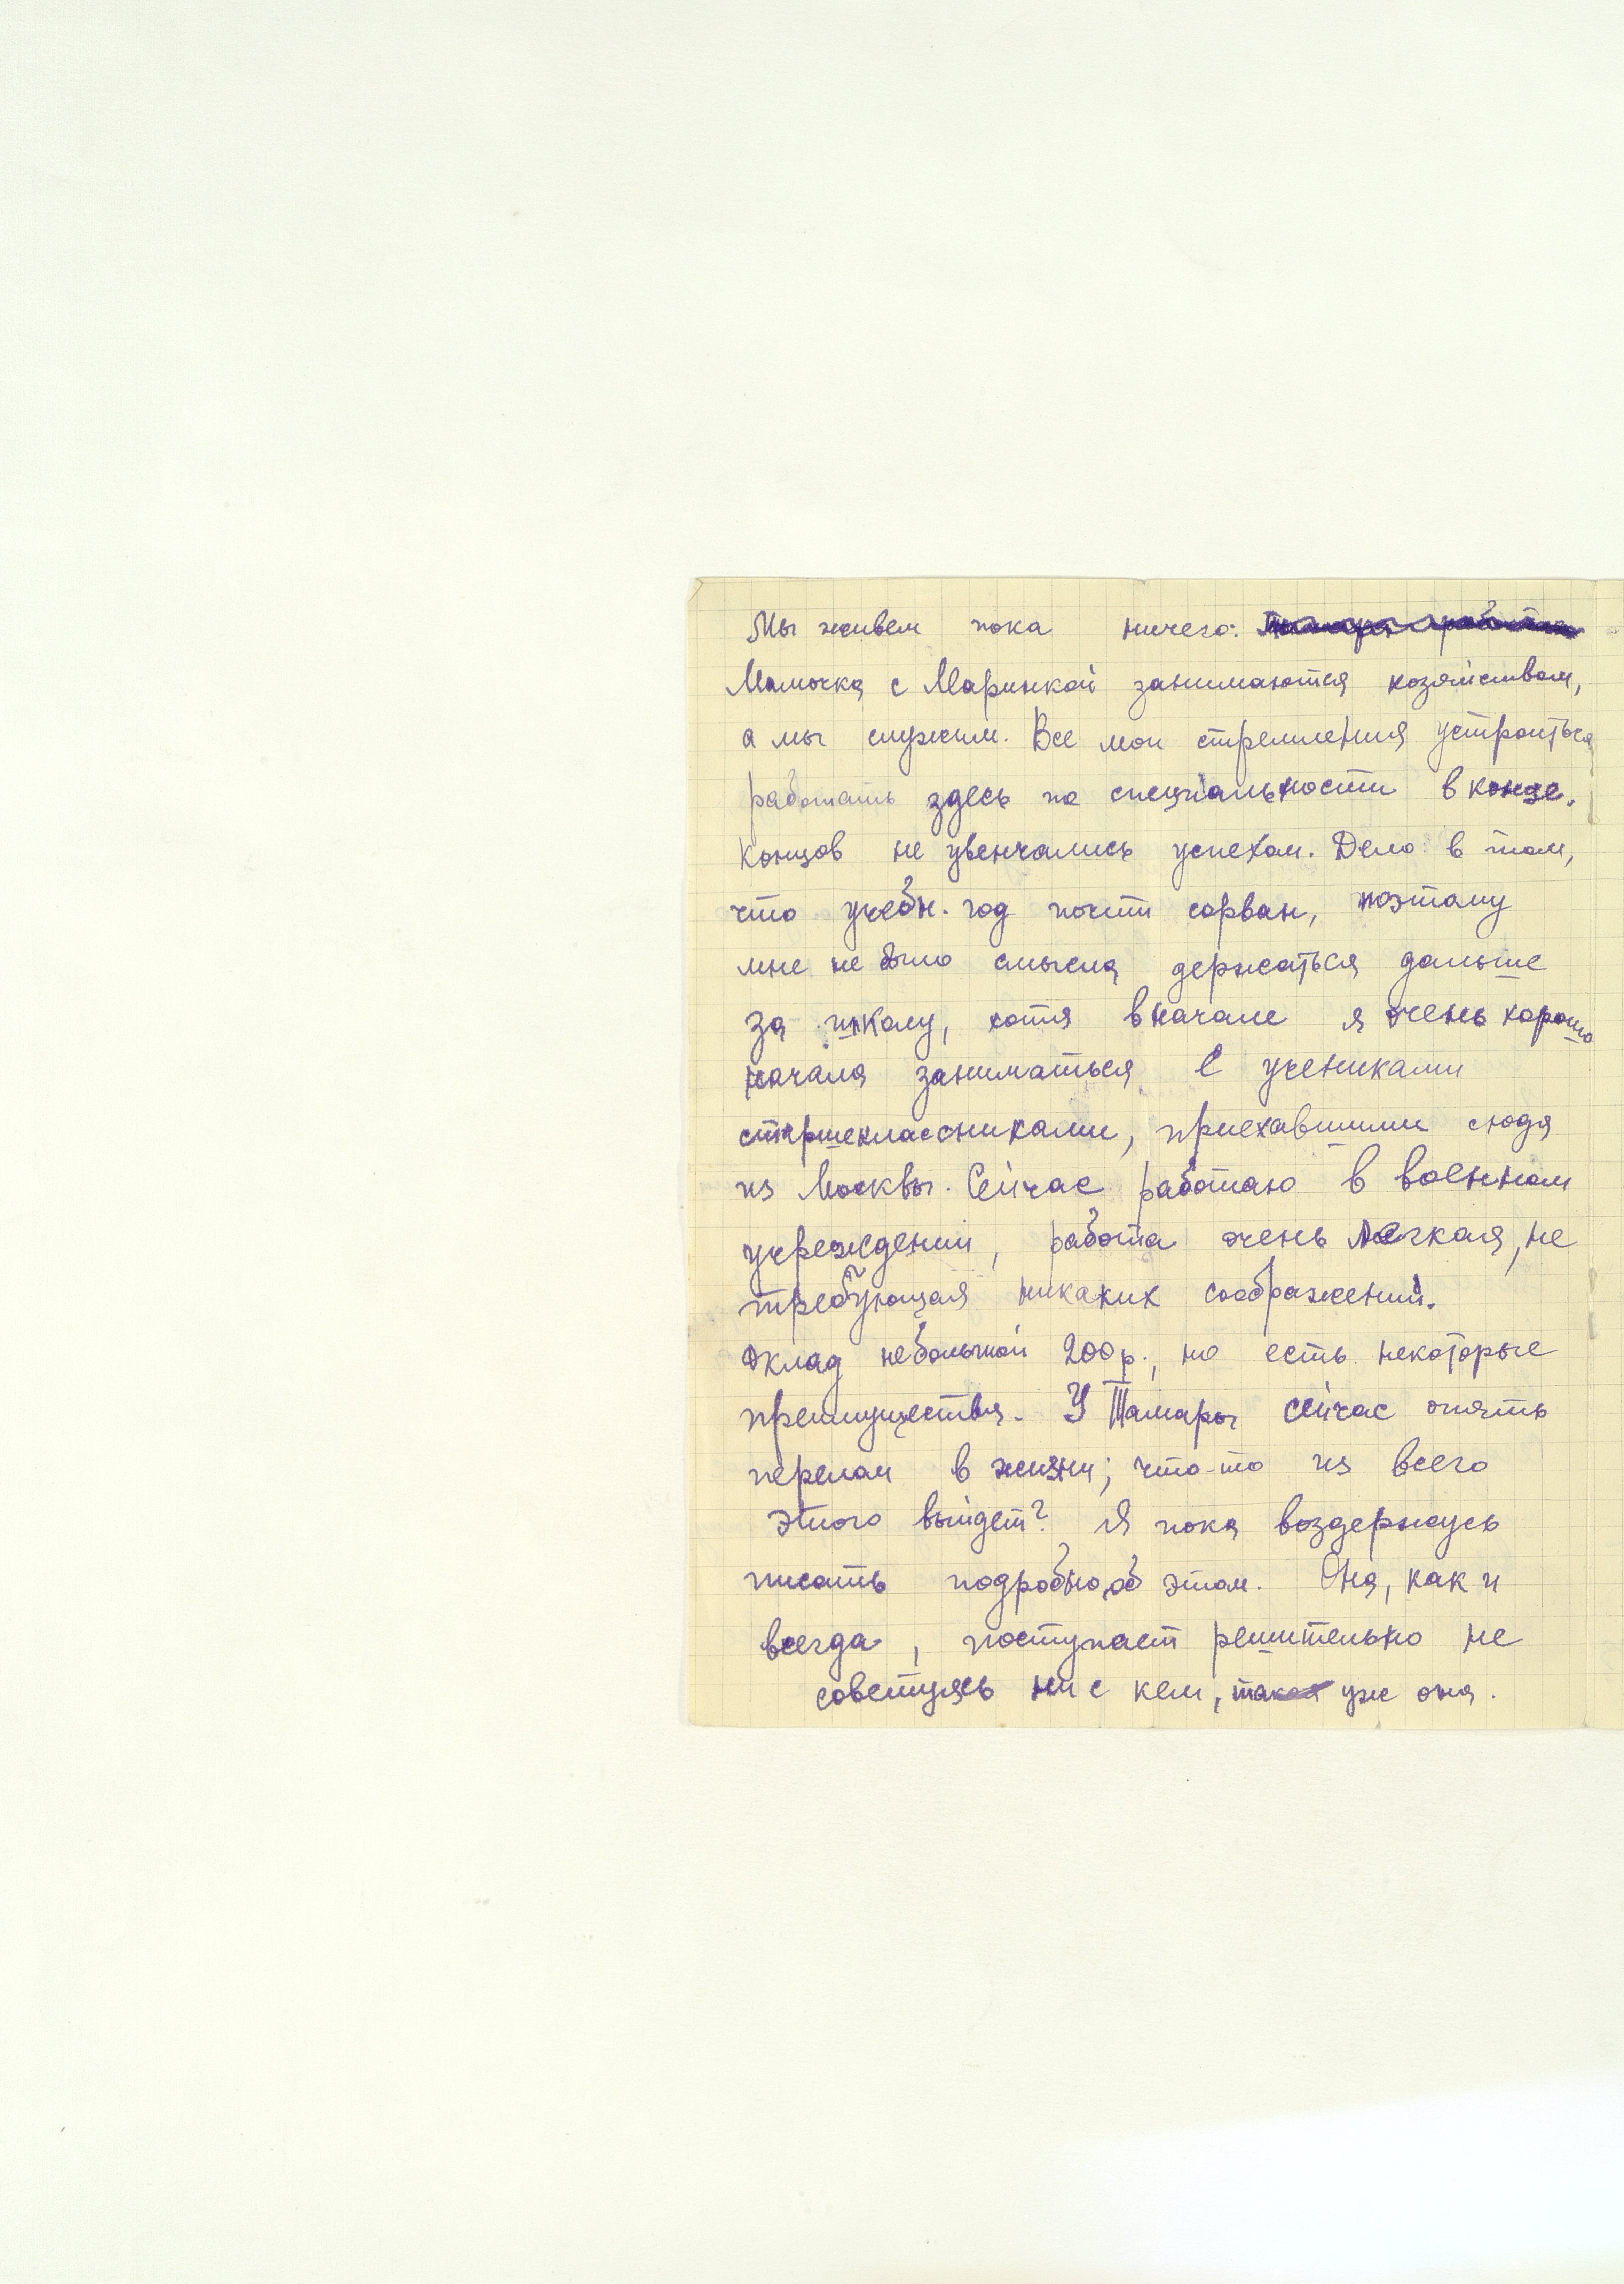 Мы живем пока ничего.
Мамочка с Маринкой занимаются хозяйством,
а мы служим. Все мои стремления устроиться
работать здесь по специальности в конце
концов не увенчались успехом. Дело в том,
что учебн. год почти сорван, поэтому
мне не было смысла держаться дальше
за школу, хотя вначале я очень хорошо
начала заниматься с учениками
старшеклассниками, приехавшими сюда
из Москвы. Сейчас работаю в военном
учреждении, работа очень легкая, не
требующая никаких соображений.
Оклад небольшой 200 р., но есть некоторые
преимущества. У Тамары сейчас опять
перелом в жизни; что-то из всего
этого выйдет? Я пока воздержусь
писать подробно об этом. Она, как и
всегда, поступает решительно не
советуясь ни с кем, такая уж она.